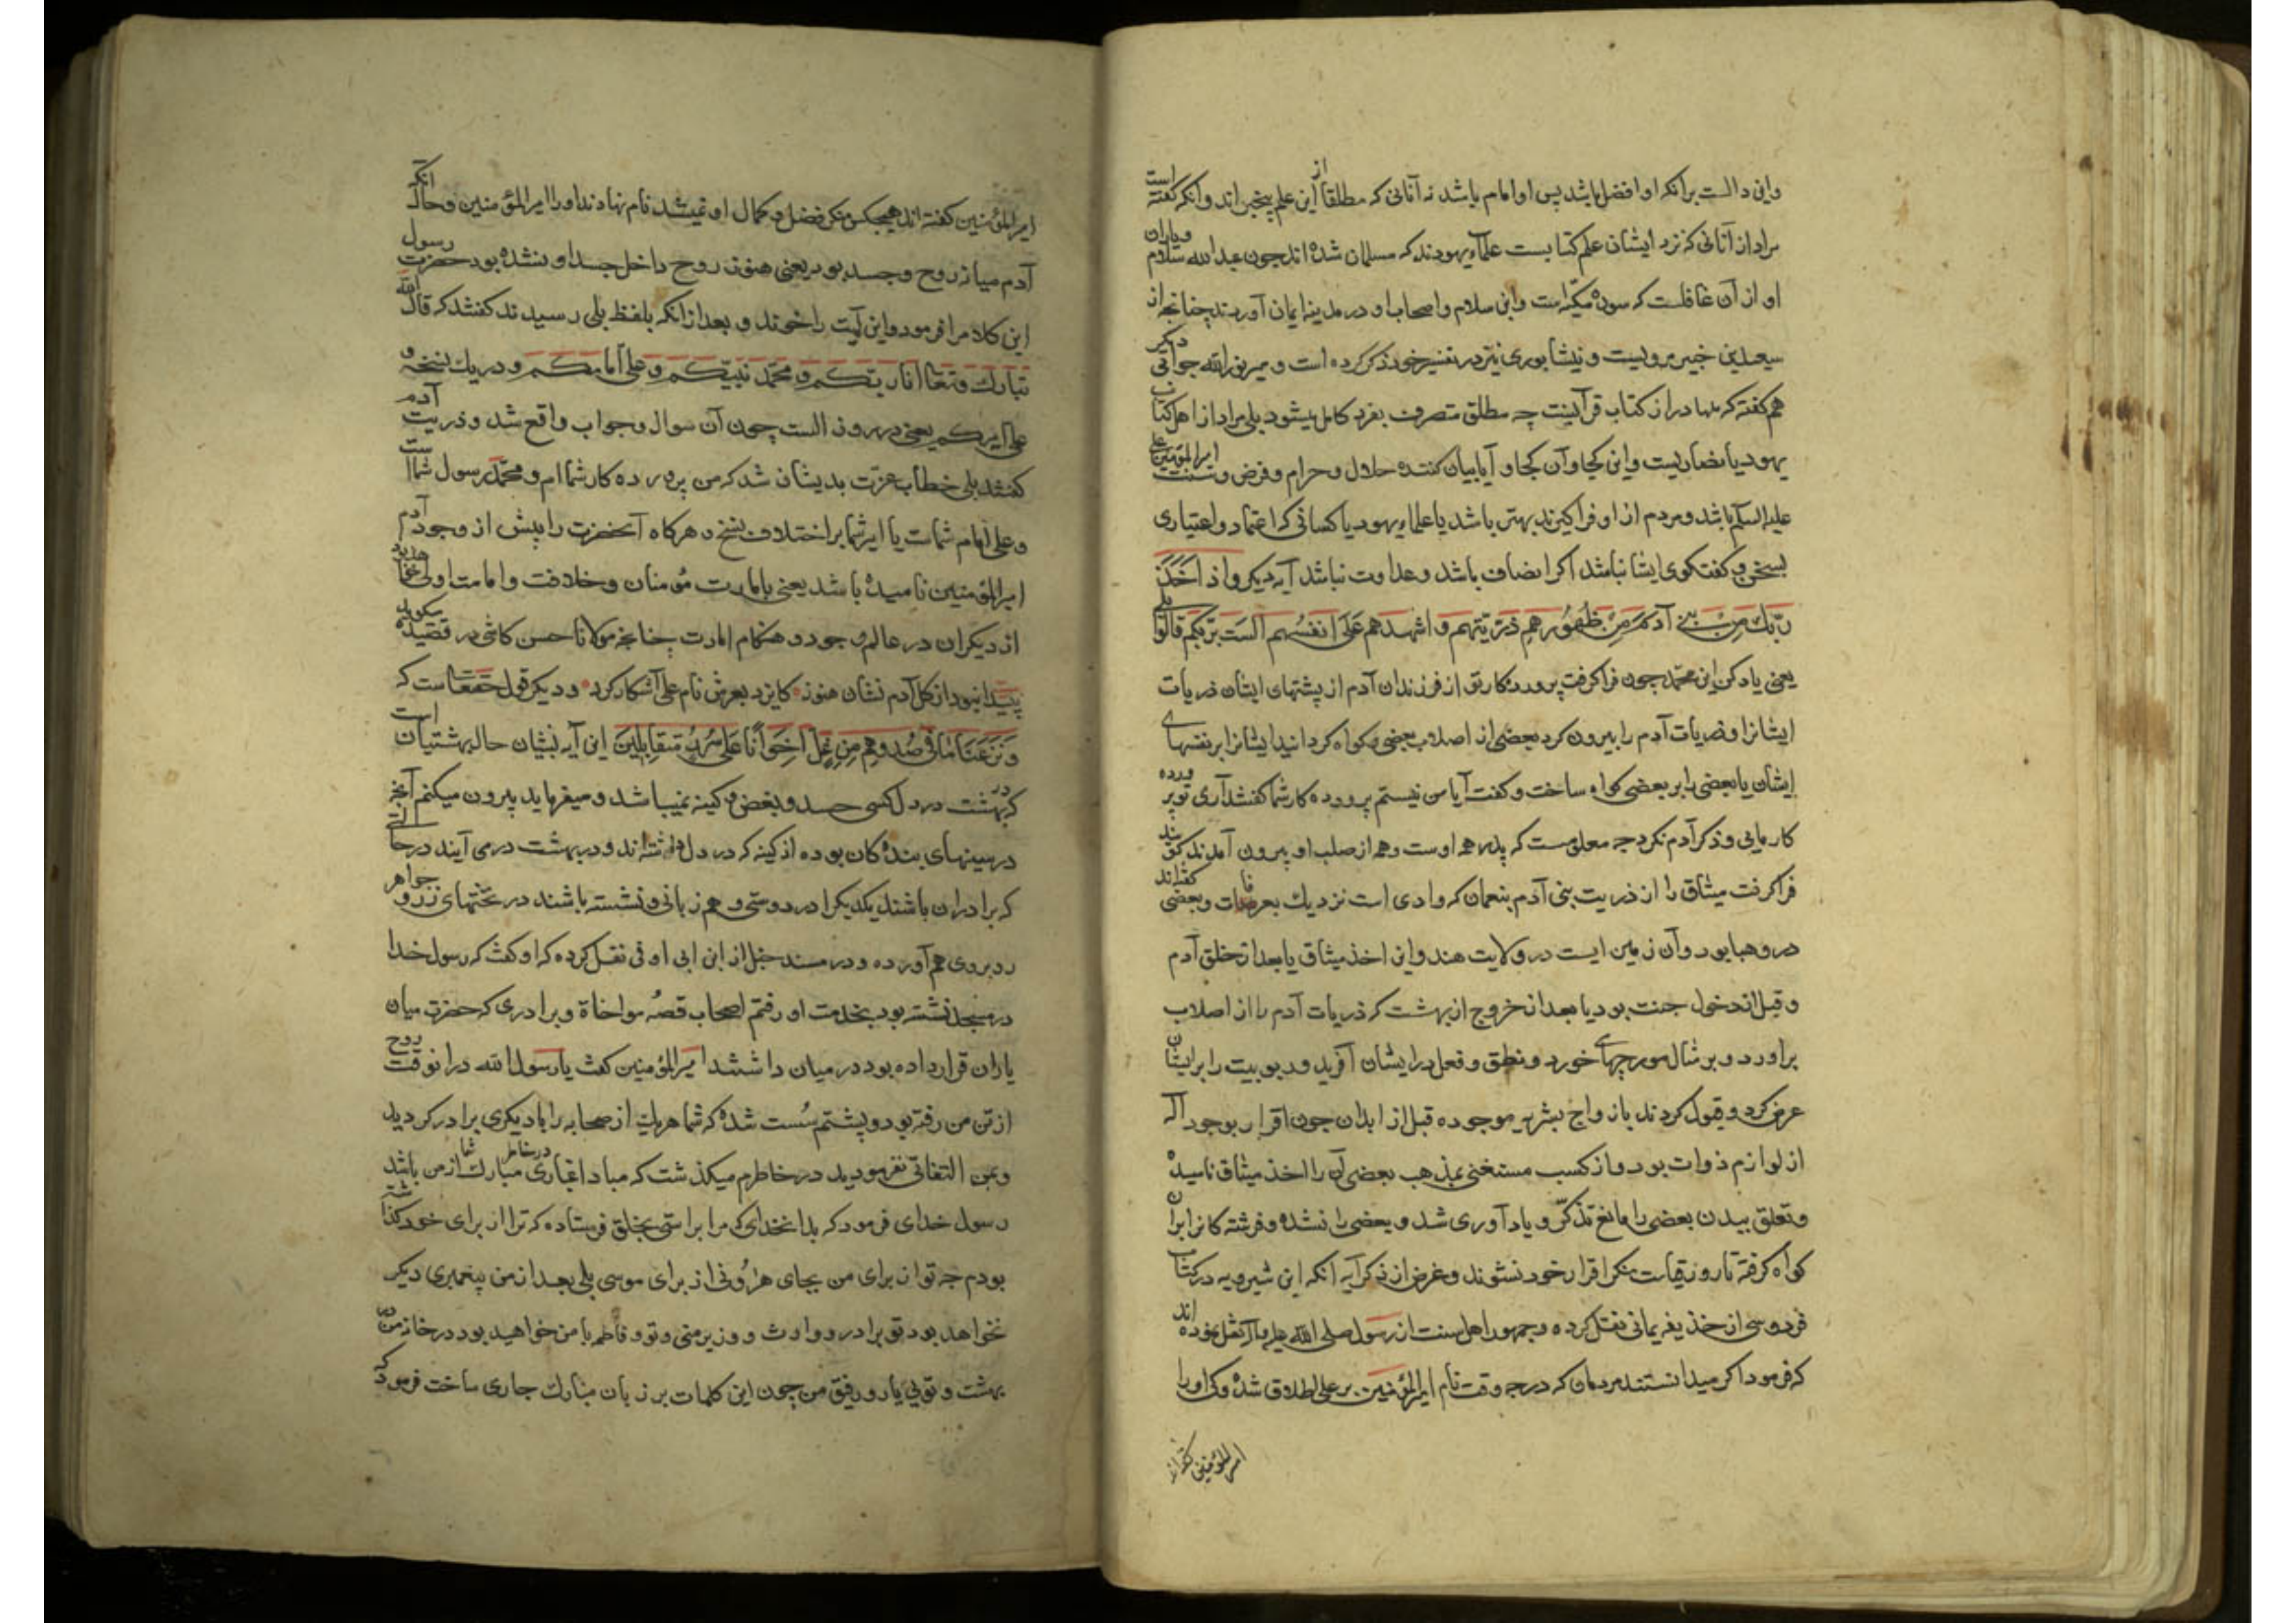 واین دالست برآنکه او افضل باشد پس او امام باشد نه آنانی که مطلقا از این علم بیخبر اند وانکه گفته است
مراد از آنانی که نزد ایشان علم کتابست علماء یهودند که مسلمان شده اند چون عبدالله سلام ویاران
او از آن غافلست که سوره مکیّه است وابن سلام واصحاب او در مدینه ایمان آوردند چنانچه از
سعید بن جبیر مرویست ونیشابوری نیز در تفسیر خود ذکر کرده است و میر نورالله جوابی دیگر
هم گفته که مراد از کتاب قرآنست چه مطلق منصرف بفرد کامل میشود بلی مراد از اهل کتاب
یهود یا نصاریست واین کجا وآن کجا و آیا بیان کننده حلال و حرام و فرض و سنت امیرالمؤمنین علی
علیه السلم باشد و مردم از او فراگیرند بهتر باشد یا علماء یهود یا کسانی که اعتماد و اعتباری
بسخن و گفتگوی ایشا نباشد اگر انصاف باشد و عداوت نباشد آیه دیگر واذ اخذ
ربّک من بنی آدم من ظهورهم ذرّیتهم و اشهدهم علی انفسهم الست بربّکم قالوا بلی
یعنی یاد کن این محمّد چون فراگرفت پروردکار تو از فرزندان آدم از پشتهای ایشان ذریات
ایشانرا و ذریات آدم را بیرون کرد بعضی از اصلاب بعضی و کواه کردانید ایشانرا بر نفسهای
ایشان یا بعضی را بر بعضی کواه ساخت و گفت آیا من نیستم پروردکار شما گفتند آری تو پرورده
کار مایی و ذکر آدم نکرد چه معلومست که پدر همه اوست و همه از صلب او بیرون آمدند گویند
فراکرفت میثاق را از ذریت بنی آدم بنعمان که وادی است نزدیک بعرفات وبعضی گفته اند
در وهبا بود و آن زمین ایست در ولایت هند واین اخذ میثاق یا بعد از خلق آدم
و قبل از دخول جنت بود یا بعد از خروج از بهشت که ذریات آدم را از اصلاب
براورد و بر مثال مورچهای خورد و نطق و فعل در ایشان آفرید و ربوبیت را بر ایشان
عرض کرد و قبول کردند بازواج بشریه موجوده قبل از ابدان چون اقرار بوجود اله
از لوازم ذوات بود و از کسب مستغنی بمذهب بعضی آن را اخذ میثاق نامیده
و تعلق ببدن بعضی را مانع تذکّر و یاد آوری شد و بعضی را نشده و فرشته کانرا بران
کواه گرفته تا روز قیامت منکر اقرار خود نشوند و غرض از ذکر آیه آنکه ابن شیرویه در کتاب
فردوسی از حذیفه یمانی نقل کرده و جمهور اهل سنت از رسول صلی الله علیه وآله نقل نموده اند
که فرمود اگر میدانستند مردمان که در چه وقت نام امیرالمؤمنین بر علی اطلاق شده و کی اورا
امیرالمؤمنین گفته اند
امیرالمؤمنین گفته اند هیچکس منکر فضل و کمال او نمیشد نام نهادند او را امیرالمؤمنین و حال آنکه
آدم میان روح و جسد بود یعنی هنوز روح داخل جسد او نشده بود حضرت رسول
این کلام را فرمود و این آیت را خوند و بعد از آنکه بلفظ بلی رسیدند گفتند که قال الله
تبارک و تعالی انا ربّکم و محمّد نبیّکم و علی امامکم و در یک نسخه و
علی امیرکم یعنی در روز الست چون آن سوال و جواب واقع شد و ذریت آدم
گفتند بلی خطاب عزت بدیشان شد که من پروردکار شما ام و محمّد رسول شماست
و علی امام شماست یا امیر شما بر اختلاف نسخ و هرکاه آنحضرت را پیش از وجود آدم
امیرالمؤمنین نامیده باشد یعنی بامارت مؤمنان و خلافت و امامت اولی خواهد بود
از دیکران در عالم وجود و هنکام امارت چنانچه مولانا حسن کاشی در قصیده میگوید
پیدا نبود از کل آدم نشان هنوز کایزد بعرش نام علی آشکار کرد و دیکر قول حقتعالی است که
وَنَزَعنَا مَا فی صُدُورِهِم مِن غِلٍّ اخوَانًا عَلی سُرُرٍ مُتَقابِلین این آیه نشان حال بهشتیان است
که در بهشت در دل کسی حسد و بغض و کینه نمیباشد و میفرماید بیرون میکنم آنچه
در سینهای بنده کان بوده از کینه که در دل داشته اند و در بهشت در می آیند در حالتی
که برادران باشند یکدیکرا در دوستی و هم زبانی و نشسته باشند در تختهای زر و جواهر
روبروی هم آورده و در مسند حنبل از ابن ابی اوفی نقل کرده که او گفت که رسول خدا
در مسجد نشسته بود بخدمت او رفتم اصحاب قصهٔ مواخاة و برادری که حضرت میان
یاران قرار داده بود در میان داشتند امیرالمؤمنین گفت یا رسول الله در انوقت روح
از تن من رفته بود و پشتم سُست شده که شما هریک از صحابه را با دیکری برادر کردید
و بمن التفاتی نفرمودید در خاطرم میکذشت که مباد اغباری در خاطر مبارک شما از من باشد
رسول خدای فرمود که بدان خدای که مرا براستی بخلق فرستاده که ترا از برای خود گذاشته
بودم چه تو از برای من بجای هارونی از برای موسی بلی بعد از من پیغمبری دیکر
نخواهد بود تو برادر و وارث و وزیر منی و تو و فاطمه با من خواهید بود در خانهٔ من در
بهشت و تویی یار و رفیق من چون این کلمات بر زبان مبارک جاری ساخت فرمود که